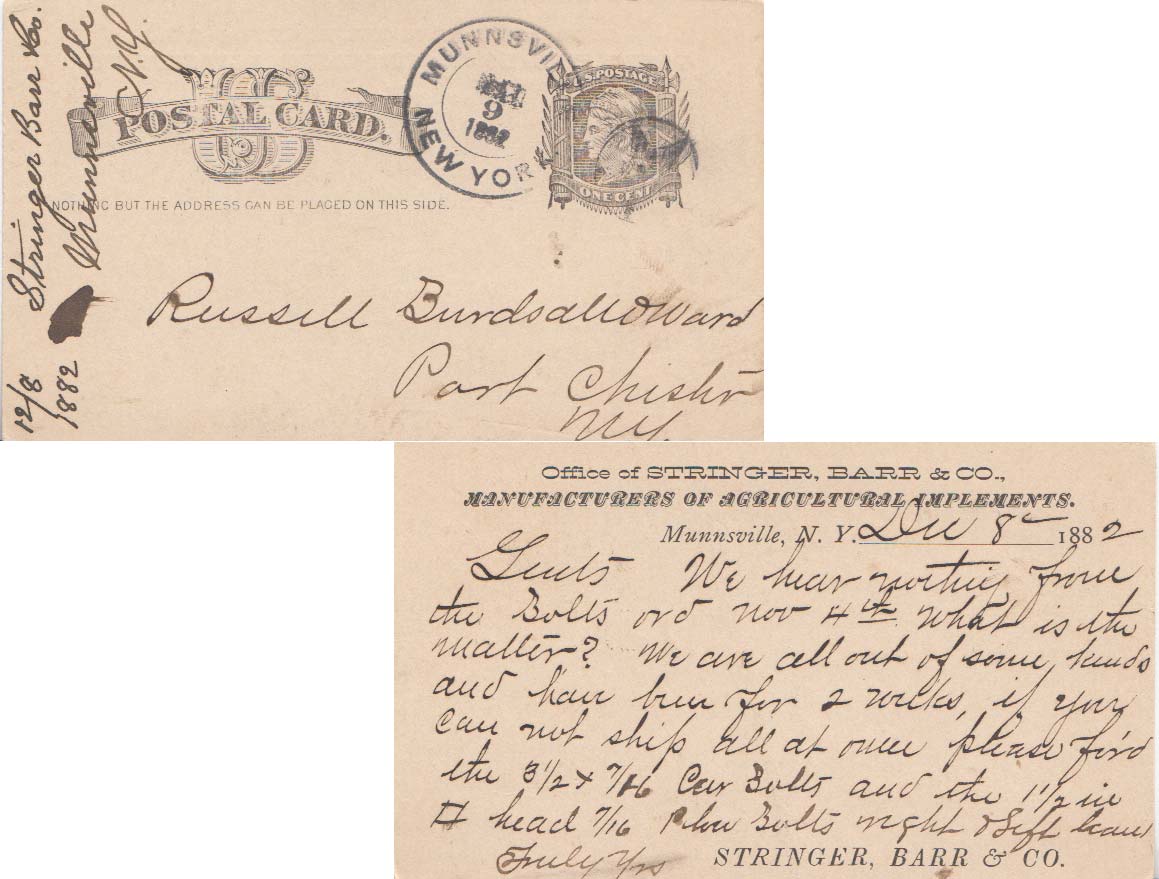 Stringer Barr & Co.
Munnsville
N.Y.
12/8
1882
POSTAL CARD.
NOTHING BUT THE ADDRESS CAN BE PLACED ON THIS SIDE.
MUNNSVIL
9
1882
NEW YORK
U.S. POSTAGE
ONE CENT
Russell Burdsall & Ward
Port Chester
NY.
Office of STRINGER, BARR & CO.,
MANUFACTURERS OF AGRICULTURAL IMPLEMENTS.
Munnsville, N. Y. Dec 8 1882
Gents We hear nothing from
the Bolts ord Nov 4th What is the
matter? We are all out of some kinds
and have been for 2 weeks, if you
can not ship all at once please for'd
the 3 1/2 x 7/16 Car Bolts and the 1 1/2 in
head 7/16 Plow Bolts right & left hand
Truly Yrs STRINGER, BARR & CO.